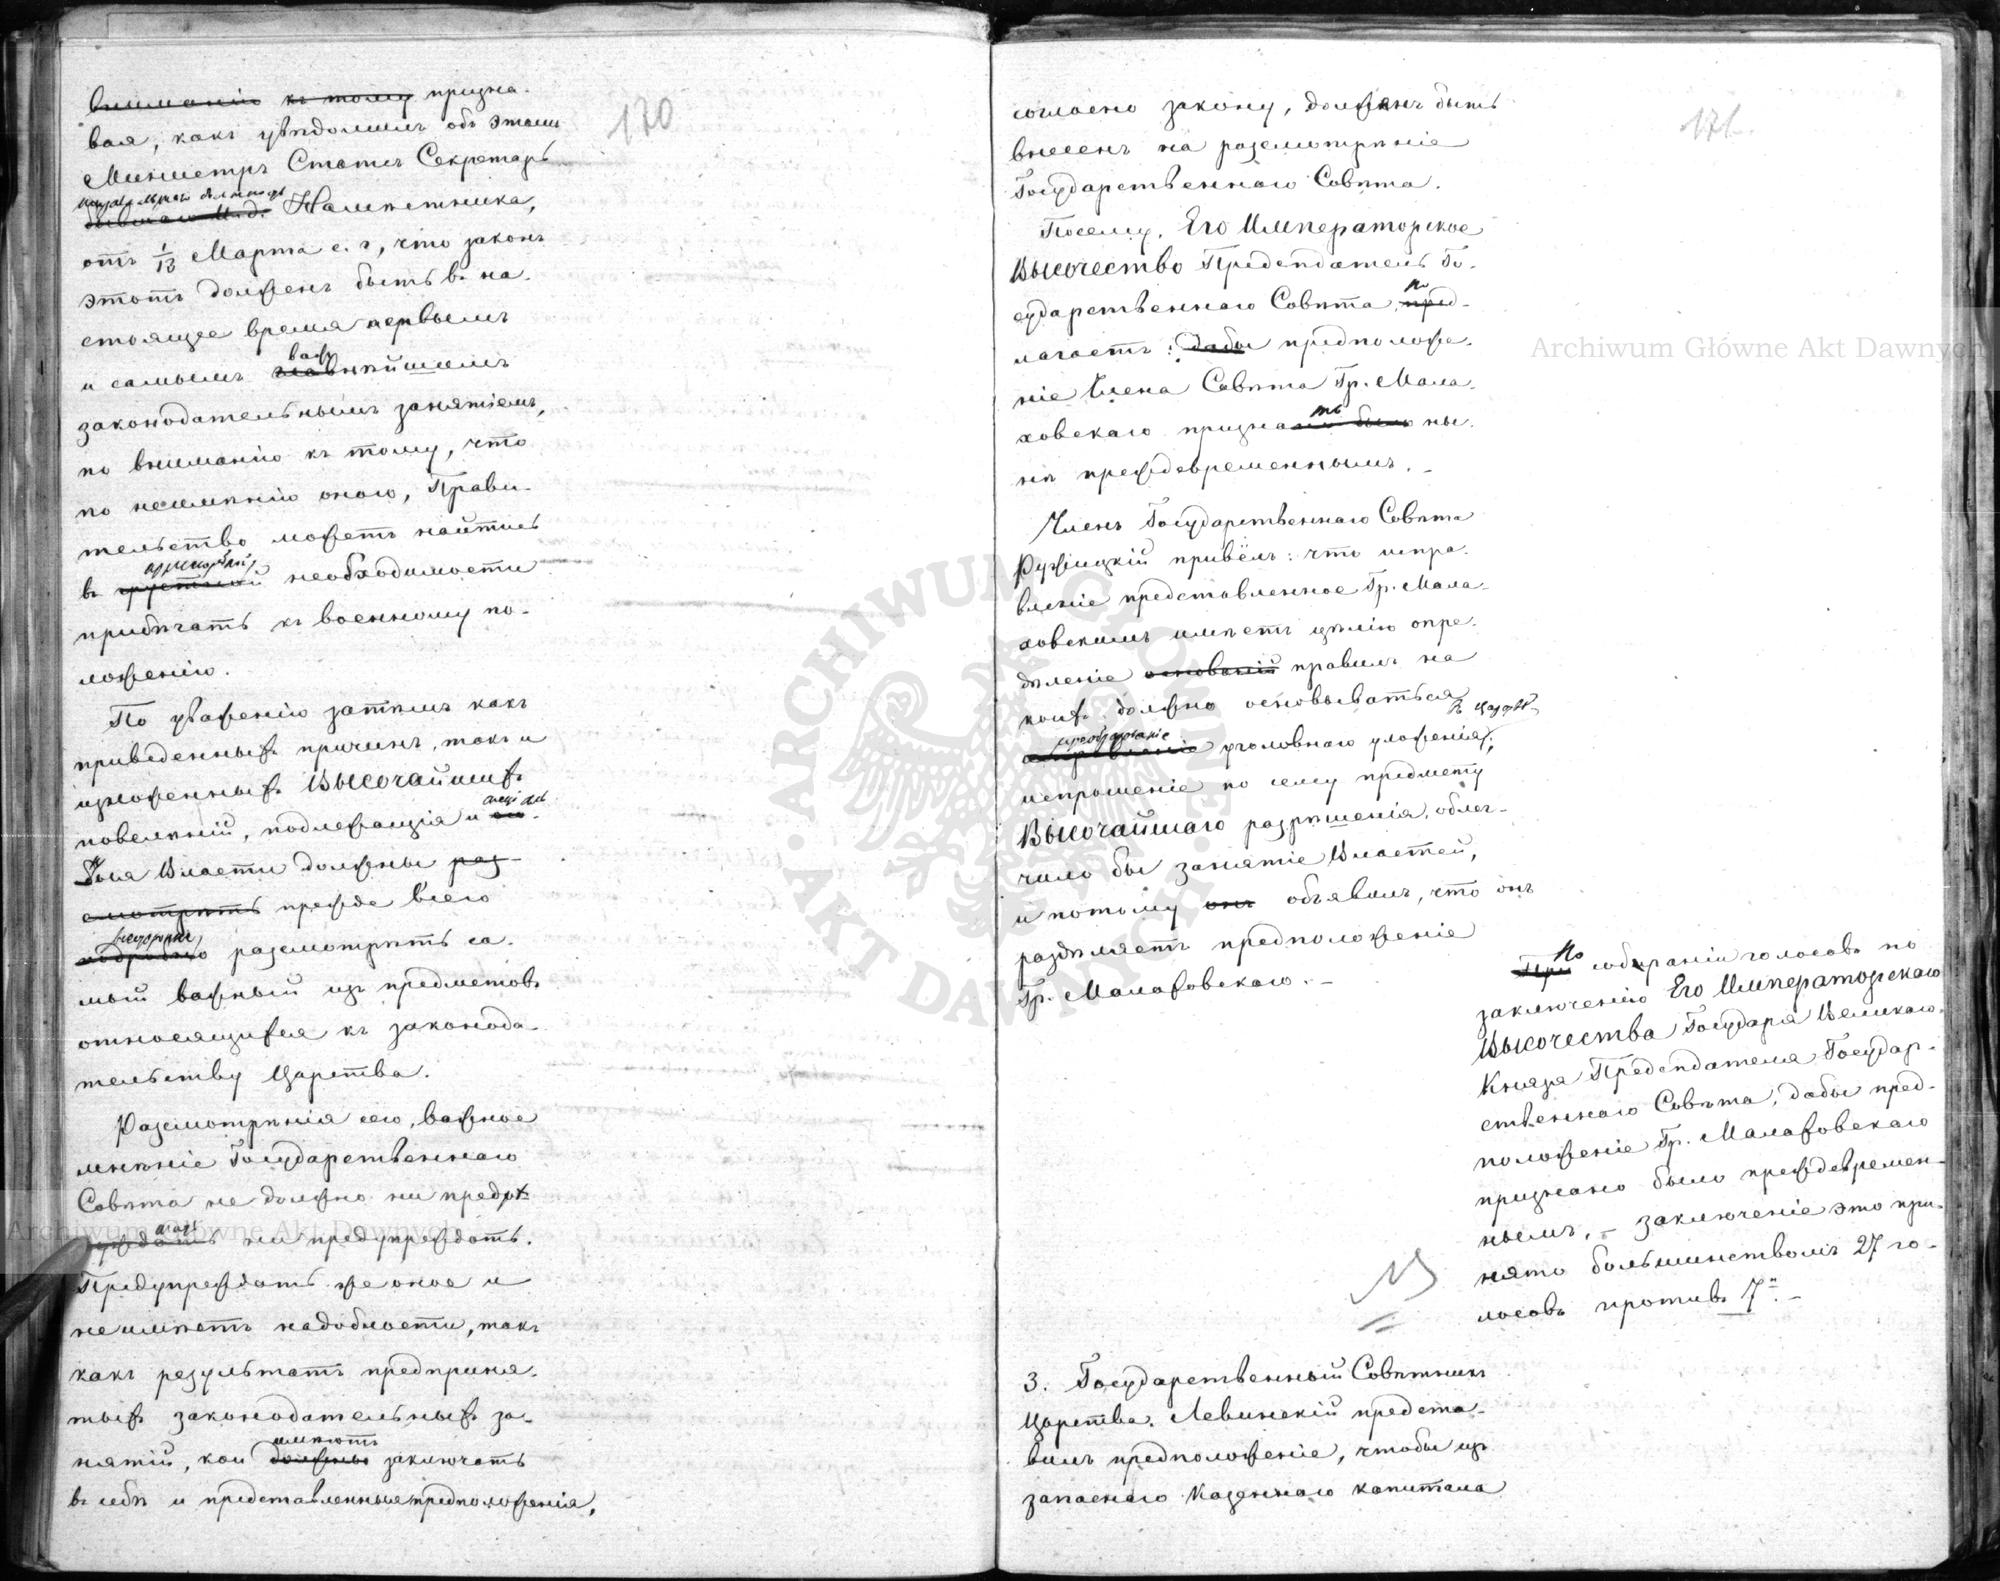 170
вниманію къ тому призна-
вая, какъ увѣдомилъ объ этомъ
Министръ Статсъ Секретарь
исправляющаго должность
бывшаго И. д. Намѣстника,
отъ 1/13 Марта с. г., что законъ
этотъ долженъ быть въ на-
стоящее время первымъ
важ
и самымъ главнѣйшимъ
законодательнымъ занятіемъ,
по вниманію къ тому, что
по неимѣнію онаго, Прави-
тельство можетъ найтись
въ грустной необходимости
прибѣгать къ военному по-
ложенію.
По уваженію затѣмъ какъ
приведенныхъ причинъ, такъ и
изложенныхъ Высочайшихъ
повелѣній, подлежащія и
Власти должны раз-
смотрѣть прежде всего
подробно разсмотрѣть са-
мый важный изъ предметовъ
относящихся къ законода-
тельству Царства.
Разсмотрѣнія сего, важное
мнѣніе Государственнаго
Совѣта не должно ни
ни предупреждать.
Предупреждать же оное и
не имѣетъ надобности, такъ
какъ результатъ предприня-
тыхъ законодательныхъ за-
имѣютъ
нятій, кои должны заключать
въ себѣ и представленныя предположенія,
171.
согласно закону, долженъ быть
внесенъ на разсмотрѣніе
Государственнаго Совѣта.
Посему, Его Императорское
Высочество Предсѣдатель Го-
по
сударственнаго Совѣта, пред-
лагаетъ: дабы предположе-
ніе Члена Совѣта Гр. Мала-
ть
ховскаго признано было ны-
нѣ преждевременнымъ. –
Членъ Государственнаго Совѣта
Ружицкій привёлъ: что испра-
вленіе представленное Гр. Мала-
ховскимъ имѣетъ цѣлію опре-
дѣленіе основаній правилъ на
коихъ должно основываться
въ Царствѣ
преобразованіе
исправленіе уголовнаго уложенія,
испрошеніе по сему предмету
Высочайшаго разрѣшенія, облег-
чило бы занятіе Властей,
и потому онъ объявилъ, что онъ
раздѣляетъ предположеніе
Гр. Малаховскаго. –
По
При собираніи голосовъ по
заключенію Его Императорскаго
Высочества Государя Великаго
Князя Предсѣдателя Государ-
ственнаго Совѣта, дабы пред-
положеніе Гр. Малаховскаго
признано было преждевремен-
нымъ, – заключеніе это при-
нято большинствомъ 27 го-
лосовъ противъ 7и. –
3. Государственный Совѣтникъ
Царства, Левинскій предста-
вилъ предположеніе, чтобы изъ
запаснаго Казеннаго капитала
Archiwum Główne Akt Dawnych
Archiwum Główne Akt Dawnych
ARCHIWUM GŁÓWNE AKT DAWNYCH